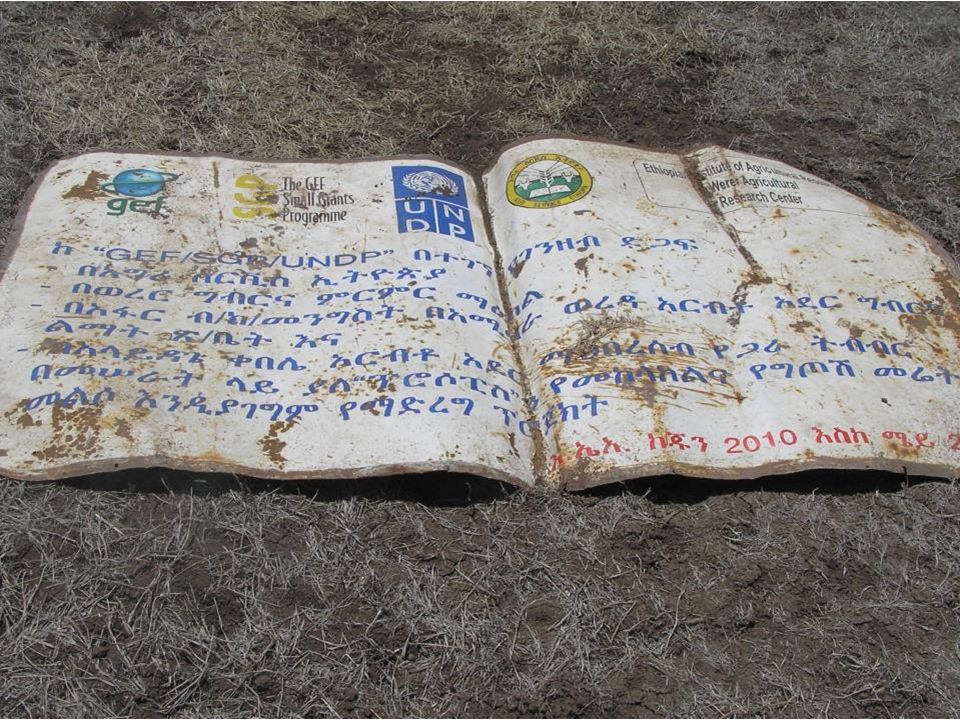 gef
SGP
The GEF
Small Grants
Programme
UN
DP
Ethiopian Institute of Agricultural
Werer Agricultural
Research Center
ከ "GEF/SGP/UNDP" በተገኘ ገንዘብ ድጋፍ
- በአማራ ኢትዮጵያ
- በወረር ግብርና ምርምር ማዕከል
- በአፋር ብ/ክ/መንግስት በአሚባራ ወረዳ አርብቶ አደር ግብርና
ልማት ጽ/ቤት እና
- በአላይደጌ ቀበሌ አርብቶ አደር የጋራ ትብብር
በመሠራት ላይ ያለ የመከላከልና የግጦሽ መሬት
መልሶ እንዲያገግም የማድረግ ፕሮጀክት
እ.ኤ.አ. ከጁን 2010 እስከ ሜይ